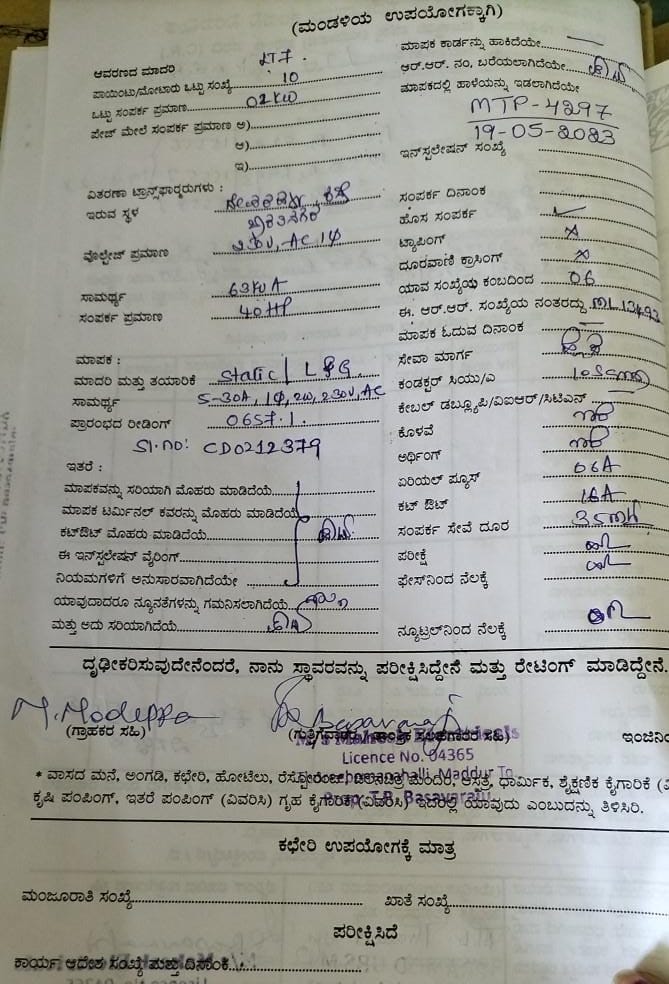 (ಮಂಡಳಿಯ ಉಪಯೋಗಕ್ಕಾಗಿ)
ಆವರಣದ ಮಾದರಿ LT7.
ಪಾಯಿಂಟು/ಮೋಟಾರು ಒಟ್ಟು ಸಂಖ್ಯೆ 10
ಒಟ್ಟು ಸಂಪರ್ಕ ಪ್ರಮಾಣ 02KW
ಪೇಜ್ ಮೇಲೆ ಸಂಪರ್ಕ ಪ್ರಮಾಣ ಅ)
ಆ)
ಇ)
ವಿತರಣಾ ಟ್ರಾನ್ಸ್‌ಫಾರ್‍ಮರುಗಳು :
ಇರುವ ಸ್ಥಳ
ವೊಲ್ಟೇಜ್ ಪ್ರಮಾಣ 230V, AC, 1Φ
ಸಾಮರ್ಥ್ಯ 63KVA
ಸಂಪರ್ಕ ಪ್ರಮಾಣ 40HP
ಮಾಪಕ :
ಮಾದರಿ ಮತ್ತು ತಯಾರಿಕೆ Static / L&G
ಸಾಮರ್ಥ್ಯ 5-30A, 1Φ, 2W, 230V, AC
ಪ್ರಾರಂಭದ ರೀಡಿಂಗ್ 0657.1.
Sl.no: CD0212379
ಇತರೆ :
ಮಾಪಕವನ್ನು ಸರಿಯಾಗಿ ಮೊಹರು ಮಾಡಿದೆಯೆ
ಮಾಪಕ ಟರ್ಮಿನಲ್ ಕವರನ್ನು ಮೊಹರು ಮಾಡಿದೆಯೆ
ಕಟ್‌ಔಟ್ ಮೊಹರು ಮಾಡಿದೆಯೆ
ಈ ಇನ್‌ಸ್ಟಲೇಷನ್ ವೈರಿಂಗ್
ನಿಯಮಗಳಿಗೆ ಅನುಸಾರವಾಗಿದೆಯೇ
ಯಾವುದಾದರೂ ನ್ಯೂನತೆಗಳನ್ನು ಗಮನಿಸಲಾಗಿದೆಯೆ
ಮತ್ತು ಅದು ಸರಿಯಾಗಿದೆಯೆ
ಮಾಪಕ ಕಾರ್ಡನ್ನು ಹಾಕಿದೆಯೇ
ಆರ್.ಆರ್. ನಂ, ಬರೆಯಲಾಗಿದೆಯೇ
ಮಾಪಕದಲ್ಲಿ ಹಾಳೆಯನ್ನು ಇಡಲಾಗಿದೆಯೇ
MTP-4297
19-05-2023
ಇನ್‌ಸ್ಟಲೇಷನ್ ಸಂಖ್ಯೆ
ಸಂಪರ್ಕ ದಿನಾಂಕ
ಹೊಸ ಸಂಪರ್ಕ
ಟ್ಯಾಪಿಂಗ್
ದೂರವಾಣಿ ಕ್ರಾಸಿಂಗ್
ಯಾವ ಸಂಖ್ಯೆಯ ಕಂಬದಿಂದ 06
ಈ. ಆರ್.ಆರ್. ಸಂಖ್ಯೆಯ ನಂತರದ್ದು ML13493
ಮಾಪಕ ಓದುವ ದಿನಾಂಕ
ಸೇವಾ ಮಾರ್ಗ
ಕಂಡಕ್ಟರ್ ಸಿಯು/ಎ
ಕೇಬಲ್ ಡಬ್ಲ್ಯೂಪಿ/ವಿಐಆರ್/ಸಿಟಿಎಸ್
ಕೊಳವೆ
ಅರ್ಥಿಂಗ್
ಏರಿಯಲ್ ಫ್ಯೂಸ್ 06A
ಕಟ್ ಔಟ್ 16A
ಸಂಪರ್ಕ ಸೇವೆ ದೂರ
ಪರೀಕ್ಷೆ
ಫೇಸ್‌ನಿಂದ ನೆಲಕ್ಕೆ
ನ್ಯೂಟ್ರಲ್‌ನಿಂದ ನೆಲಕ್ಕೆ
ದೃಢೀಕರಿಸುವುದೇನೆಂದರೆ, ನಾನು ಸ್ಥಾವರವನ್ನು ಪರೀಕ್ಷಿಸಿದ್ದೇನೆ ಮತ್ತು ರೇಟಿಂಗ್ ಮಾಡಿದ್ದೇನೆ.
M. Madeppa
(ಗ್ರಾಹಕರ ಸಹಿ)
Licence No. 04365
Prop: T.B. Basavaraju
* ವಾಸದ ಮನೆ, ಅಂಗಡಿ, ಕಛೇರಿ, ಹೋಟೆಲು, ರೆಸ್ಟೋರೆಂಟ್, ಚಲನಚಿತ್ರ ಮಂದಿರ, ಆಸ್ಪತ್ರೆ, ಧಾರ್ಮಿಕ, ಶೈಕ್ಷಣಿಕ ಕೈಗಾರಿಕೆ
ಕೃಷಿ ಪಂಪಿಂಗ್, ಇತರೆ ಪಂಪಿಂಗ್ (ವಿವರಿಸಿ) ಗೃಹ ಕೈಗಾರಿಕೆ (ವಿವರಿಸಿ) ಇದರಲ್ಲಿ ಯಾವುದು ಎಂಬುದನ್ನು ತಿಳಿಸಿರಿ.
ಕಛೇರಿ ಉಪಯೋಗಕ್ಕೆ ಮಾತ್ರ
ಮಂಜೂರಾತಿ ಸಂಖ್ಯೆ ಖಾತೆ ಸಂಖ್ಯೆ
ಪರೀಕ್ಷಿಸಿದೆ
ಕಾರ್ಯ ಆದೇಶ ಸಂಖ್ಯೆ ಮತ್ತು ದಿನಾಂಕ